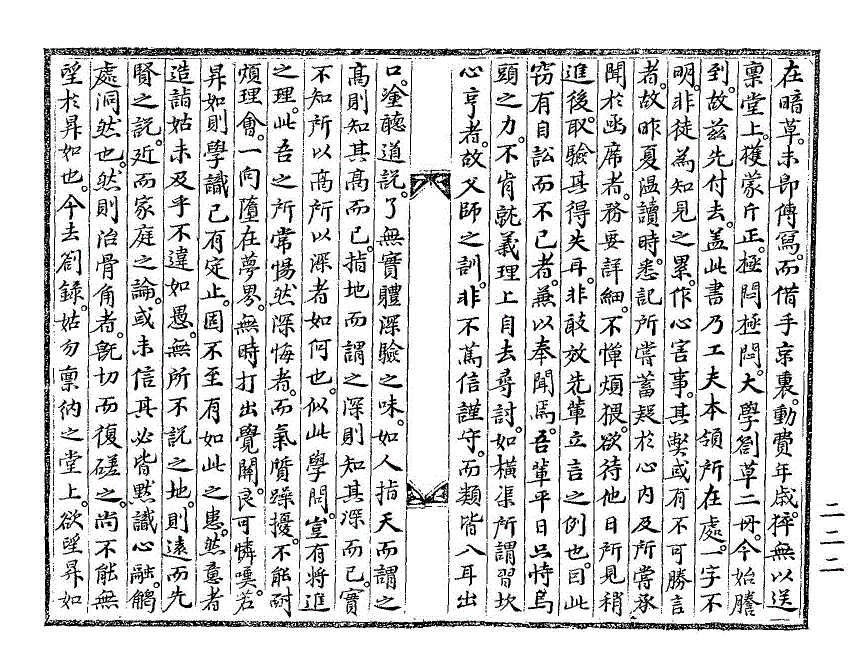 在暗草。未卽傳寫。而借手京裏。動費年歲。猝無以送
稟堂上。獲蒙斤正。極悶極悶。大學劄草二冊。今始謄
到。故茲先付去。盖此書乃工夫本領所在處。一字不
明。非徒為知見之累。作心害事。其弊或有不可勝言
者。故昨夏溫讀時。悉記所嘗蓄疑於心內及所嘗承
聞於函席者。務要詳細。不憚煩猥。欲待他日所見稍
進後。取驗其得失耳。非敢效先輩立言之例也。因此
窃有自訟而不已者。兼以奉聞焉。吾輩平日只恃鳥
頭之力。不肯就義理上自去尋討。如橫渠所謂習坎
心亨者。故父師之訓。非不篤信謹守。而類皆入耳出
口。塗聽道說。了無實體深驗之味。如人指天而謂之
高則知其高而已。指地而謂之深則知其深而已。實
不知所以高所以深者如何也。似此學問。豈有將進
之理。此吾之所常惕然深悔者。而氣質躁擾。不能耐
煩理會。一向墮在夢界。無時打出覺關。良可憐嘆。若
昇如則學識已有定止。固不至有如此之患。然意者
造詣姑未及乎不違如愚。無所不說之地。則遠而先
賢之說。近而家庭之論。或未信其必皆默識心融。觸
處洞然也。然則治骨角者。旣切而復磋之。尚不能無
望於昇如也。今去劄錄。姑勿稟納之堂上。欲望昇如
二二二